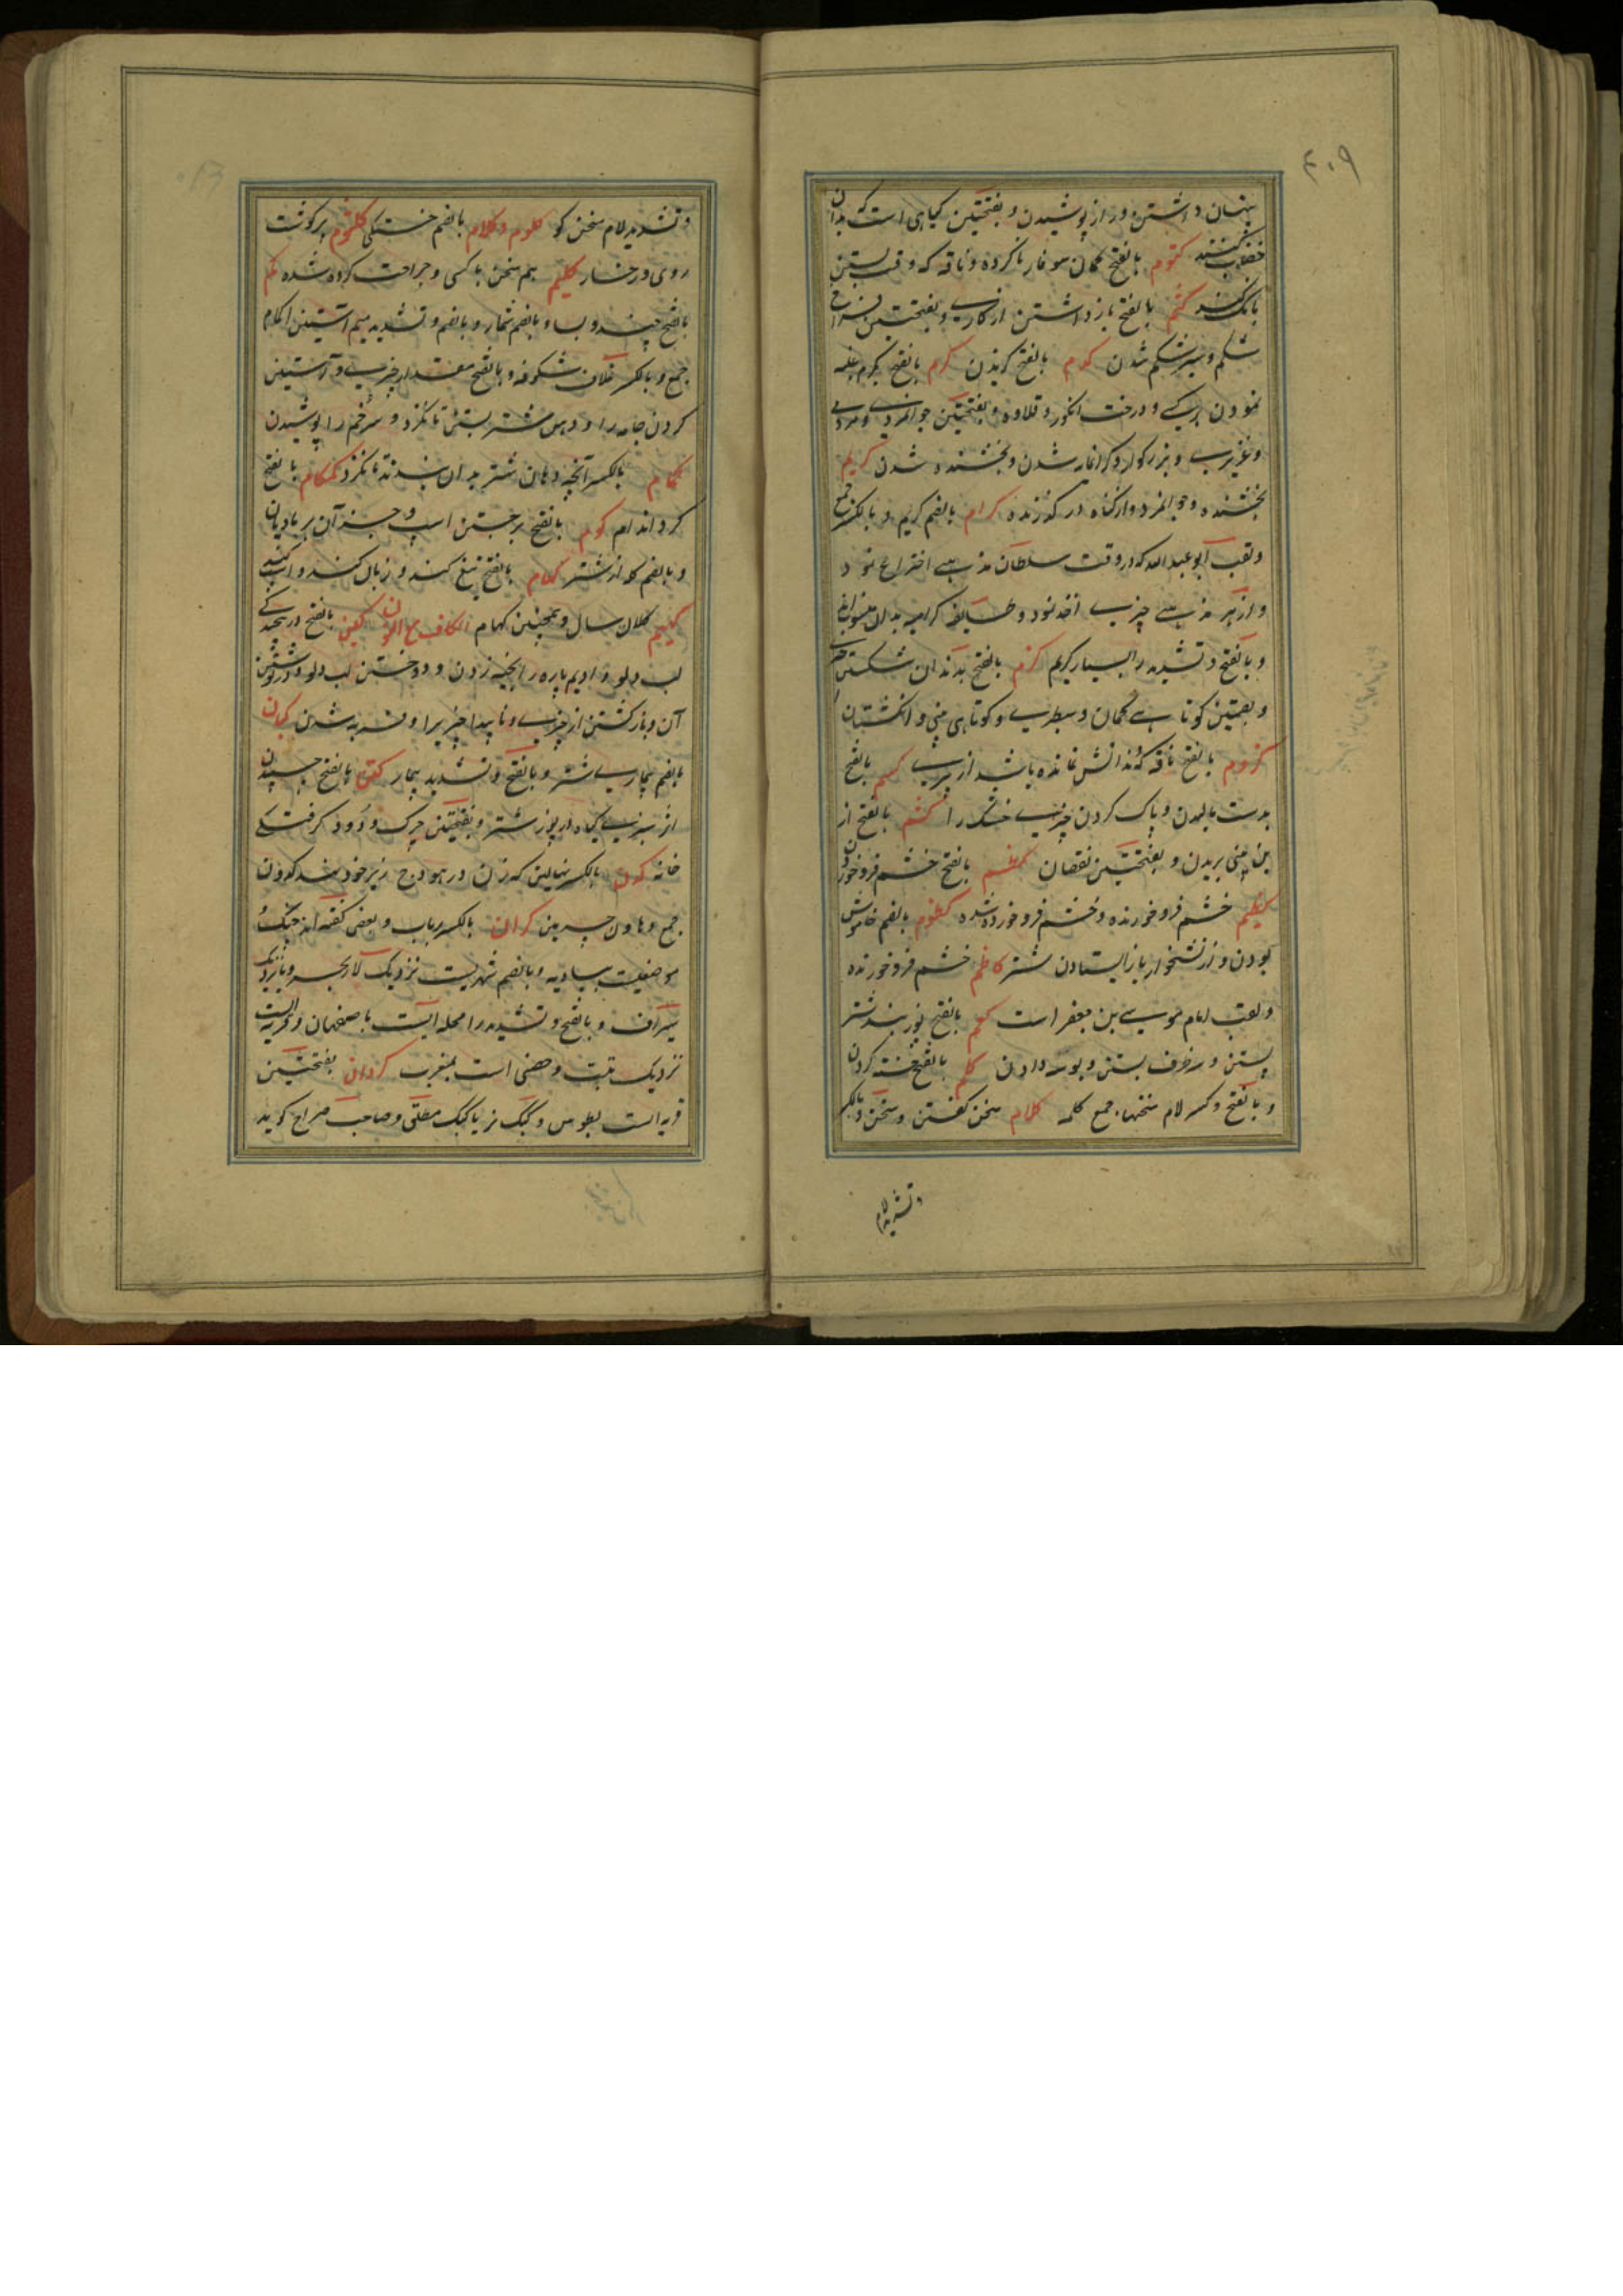 ۴۰۹
پنهان داشتن و راز پوشیدن و بفتحتین گیاهی است که بدان
خضاب کنند کتوم بالفتح کمان سوفار ناکرده و ناقه که وقت بستن
بانگ نکند کثم بالفتح بازداشتن از کاری و بفتحتین فراخ
شکم و سیر شکم شدن کدم بالفتح گزیدن کرم بالفتح بکرم غلبه
نمودن بر کسی و درخت انگور و قلاوه و بفتحتین جوانمردی و مردمی
و عزیزی و بزرگوار و گرانمایه شدن و بخشنده شدن کریم
بخشنده و جوانمرد و از گناه درگذرنده کرام بالضم کریم و بالکسر جمع
و لقب ابو عبد الله که در وقت سلطان مذهبی اختراع نمود
و از هر مذهبی چیزی اخذ نمود و طایفه کرامیه بدان منسوبند
و بالفتح و تشدید را بسیار کریم کزم بالفتح بدندان شکستن
و بفتحتین کوتاهی کمان و سطبری و کوتاهی بینی و انگشتان
کزوم بالفتح ناقه که دندانش نمانده باشد از پیری کسم بالفتح
بدست مالیدن و پاک کردن چیزی خشک را کشم بالفتح از
بن بینی بریدن و بفتحتین نقصان کظم بالفتح خشم فرو خوردن
کظیم خشم فرو خورنده و خشم فرو خورده شده کظوم بالضم خاموش
بودن و از نشخوار باز ایستادن شتر کاظم خشم فرو خورنده
و لقب امام موسی بن جعفر است کعم بالفتح پوزبند شتر
بستن و سر ظرف بستن و بوسه دادن کلم بالفتح خسته کردن
و بالفتح و کسر لام سخنها جمع کلمه کلام سخن گفتن و سخن و بالکسر
و تشدید لام
و تشدید لام سخن گو کلوم و کلام بالضم خستگی کلثوم پرگوشت
روی و رخسار کلیم هم سخن با کسی و جراحت کرده شده کم
بالفتح چند و بسا و بالضم شمار و بالضم و تشدید میم آستین اکمام
جمع و بالکسر غلاف شکوفه و بالفتح مقدار چیزی و آستین
کردن جامه را و دهن شتر بستن تا نگزد و سر خم را پوشیدن
کمام بالکسر آنچه دهان شتر بدان بندند تا نگزد کمکام بالفتح
گرد اندام کوم بالفتح برجستن اسپ و جز آن بر مادیان
و بالضم گله از شتر کهام بالفتح تیغ کند و زبان کند و اسب کند
کهیم کلان سال و همچنین کهام الکاف مع النون کبن بالفتح
لب دلو و ادیم پاره را بخیه زدن و دوختن لب دلو
آن و بازگشتن از چیزی و ناپیدا چیزیرا و فربه شدن کبان
بالضم بیماری شتر و بالفتح و تشدید بیمار کتن بالفتح چسپیدن
اثر سبزی گیاه در پوز شتر و بفتحتین چرک و دود گرفتگی
خانه کدن بالکسر نهالین که زن در هودج زیر خود نهد کدون
جمع و هاون چرمین کران بالکسر رباب و بعض گفته اند چنگ و
موضعیست ببادیه و بالضم شهریست نزدیک لار بحر و نزدیک
سیراف و بالفتح و تشدید را محله ایست باصفهان و قریه ایست
نزدیک تبت و حصنی است بمغرب کردان بفتحتین
قریه است بطوس و کبک نر یا کبک مطلق و صاحب صراح گوید